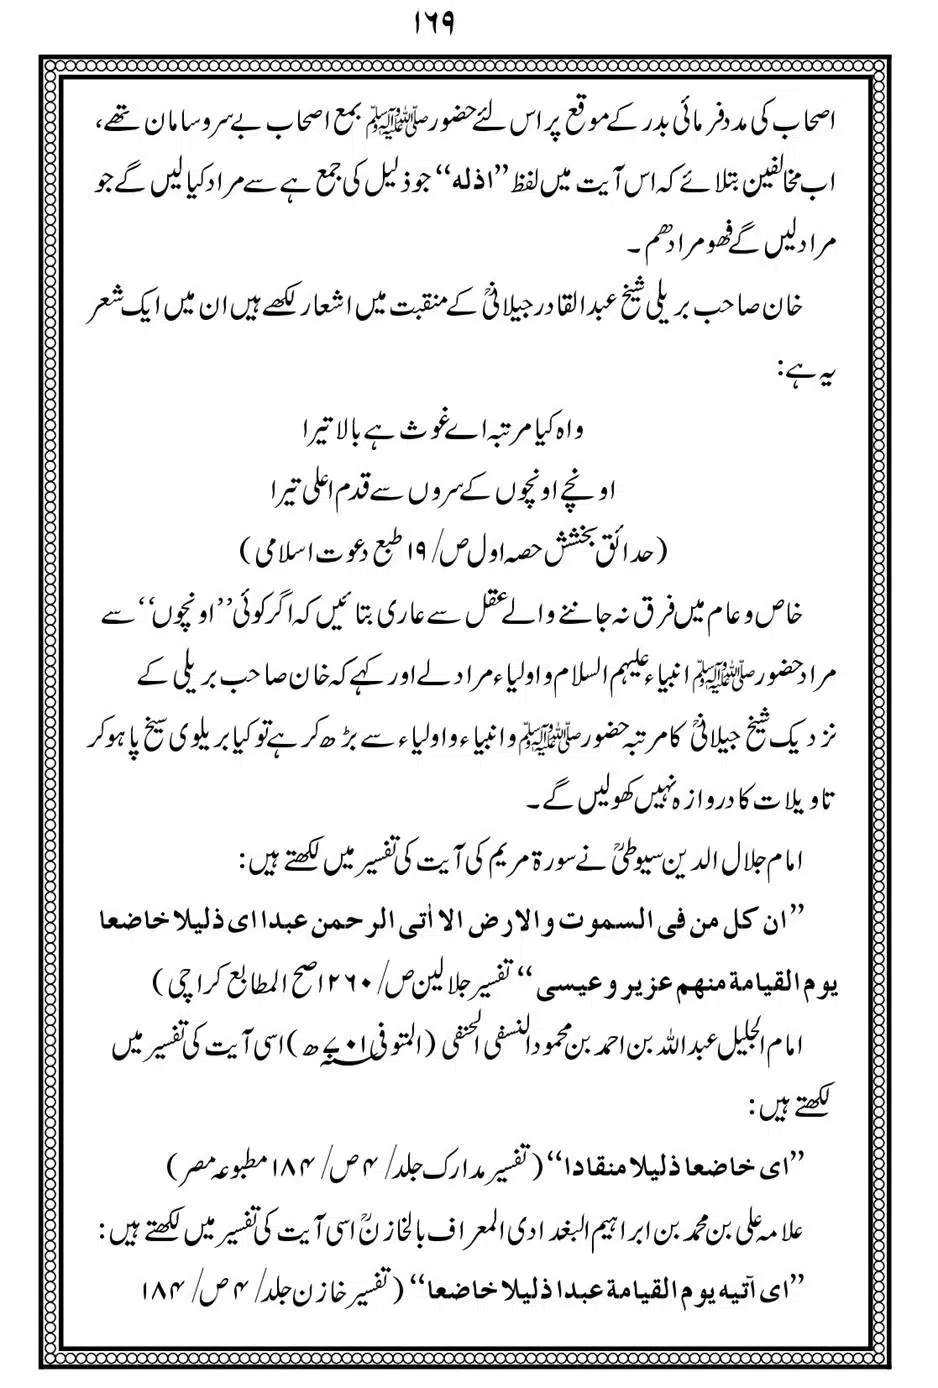 ۱۶۹
اصحاب کی مدد فرمائی بدر کے موقع پر اس لئے حضور ﷺ بمع اصحاب بے سروسامان تھے،
اب مخالفین بتلائے کہ اس آیت میں لفظ ”اذله“ جو ذلیل کی جمع ہے سے مراد کیا لیں گے جو
مراد لیں گے فھو مرادھم ۔
خان صاحب بریلی شیخ عبدالقادر جیلانیؒ کے منقبت میں اشعار لکھے ہیں ان میں ایک شعر
یہ ہے:
واہ کیا مرتبہ اے غوث ہے بالا تیرا
اونچے اونچوں کے سروں سے قدم اعلی تیرا
(حدائق بخشش حصہ اول ص/۱۹ طبع دعوت اسلامی)
خاص و عام میں فرق نہ جاننے والے عقل سے عاری بتائیں کہ اگر کوئی ”اونچوں“ سے
مراد حضور ﷺ انبیاء علیہم السلام و اولیاء مراد لے اور کہے کہ خان صاحب بریلی کے
نزدیک شیخ جیلانیؒ کا مرتبہ حضور ﷺ و انبیاء و اولیاء سے بڑھ کر ہے تو کیا بریلوی سیخ پا ہو کر
تاویلات کا دروازہ نہیں کھولیں گے۔
امام جلال الدین سیوطیؒ نے سورۃ مریم کی آیت کی تفسیر میں لکھتے ہیں:
”ان کل من فی السموت والارض الا اٰتی الرحمن عبدا ای ذلیلا خاضعا
یوم القیامة منهم عزیر و عیسی“ تفسیر جلالین ص/۲۶۰ اصح المطابع کراچی)
امام الجلیل عبداللہ بن احمد بن محمود النسفی الحنفی (المتوفی ۷۰۱ھ) اسی آیت کی تفسیر میں
لکھتے ہیں:
”ای خاضعا ذلیلا منقادا“ (تفسیر مدارک جلد/۴ ص/۱۸۴ مطبوعہ مصر)
علامہ علی بن محمد بن ابراہیم البغدادی المعراف بالخازنؒ اسی آیت کی تفسیر میں لکھتے ہیں:
”ای آتیه یوم القیامة عبدا ذلیلا خاضعا“ (تفسیر خازن جلد/۴ ص/۱۸۴